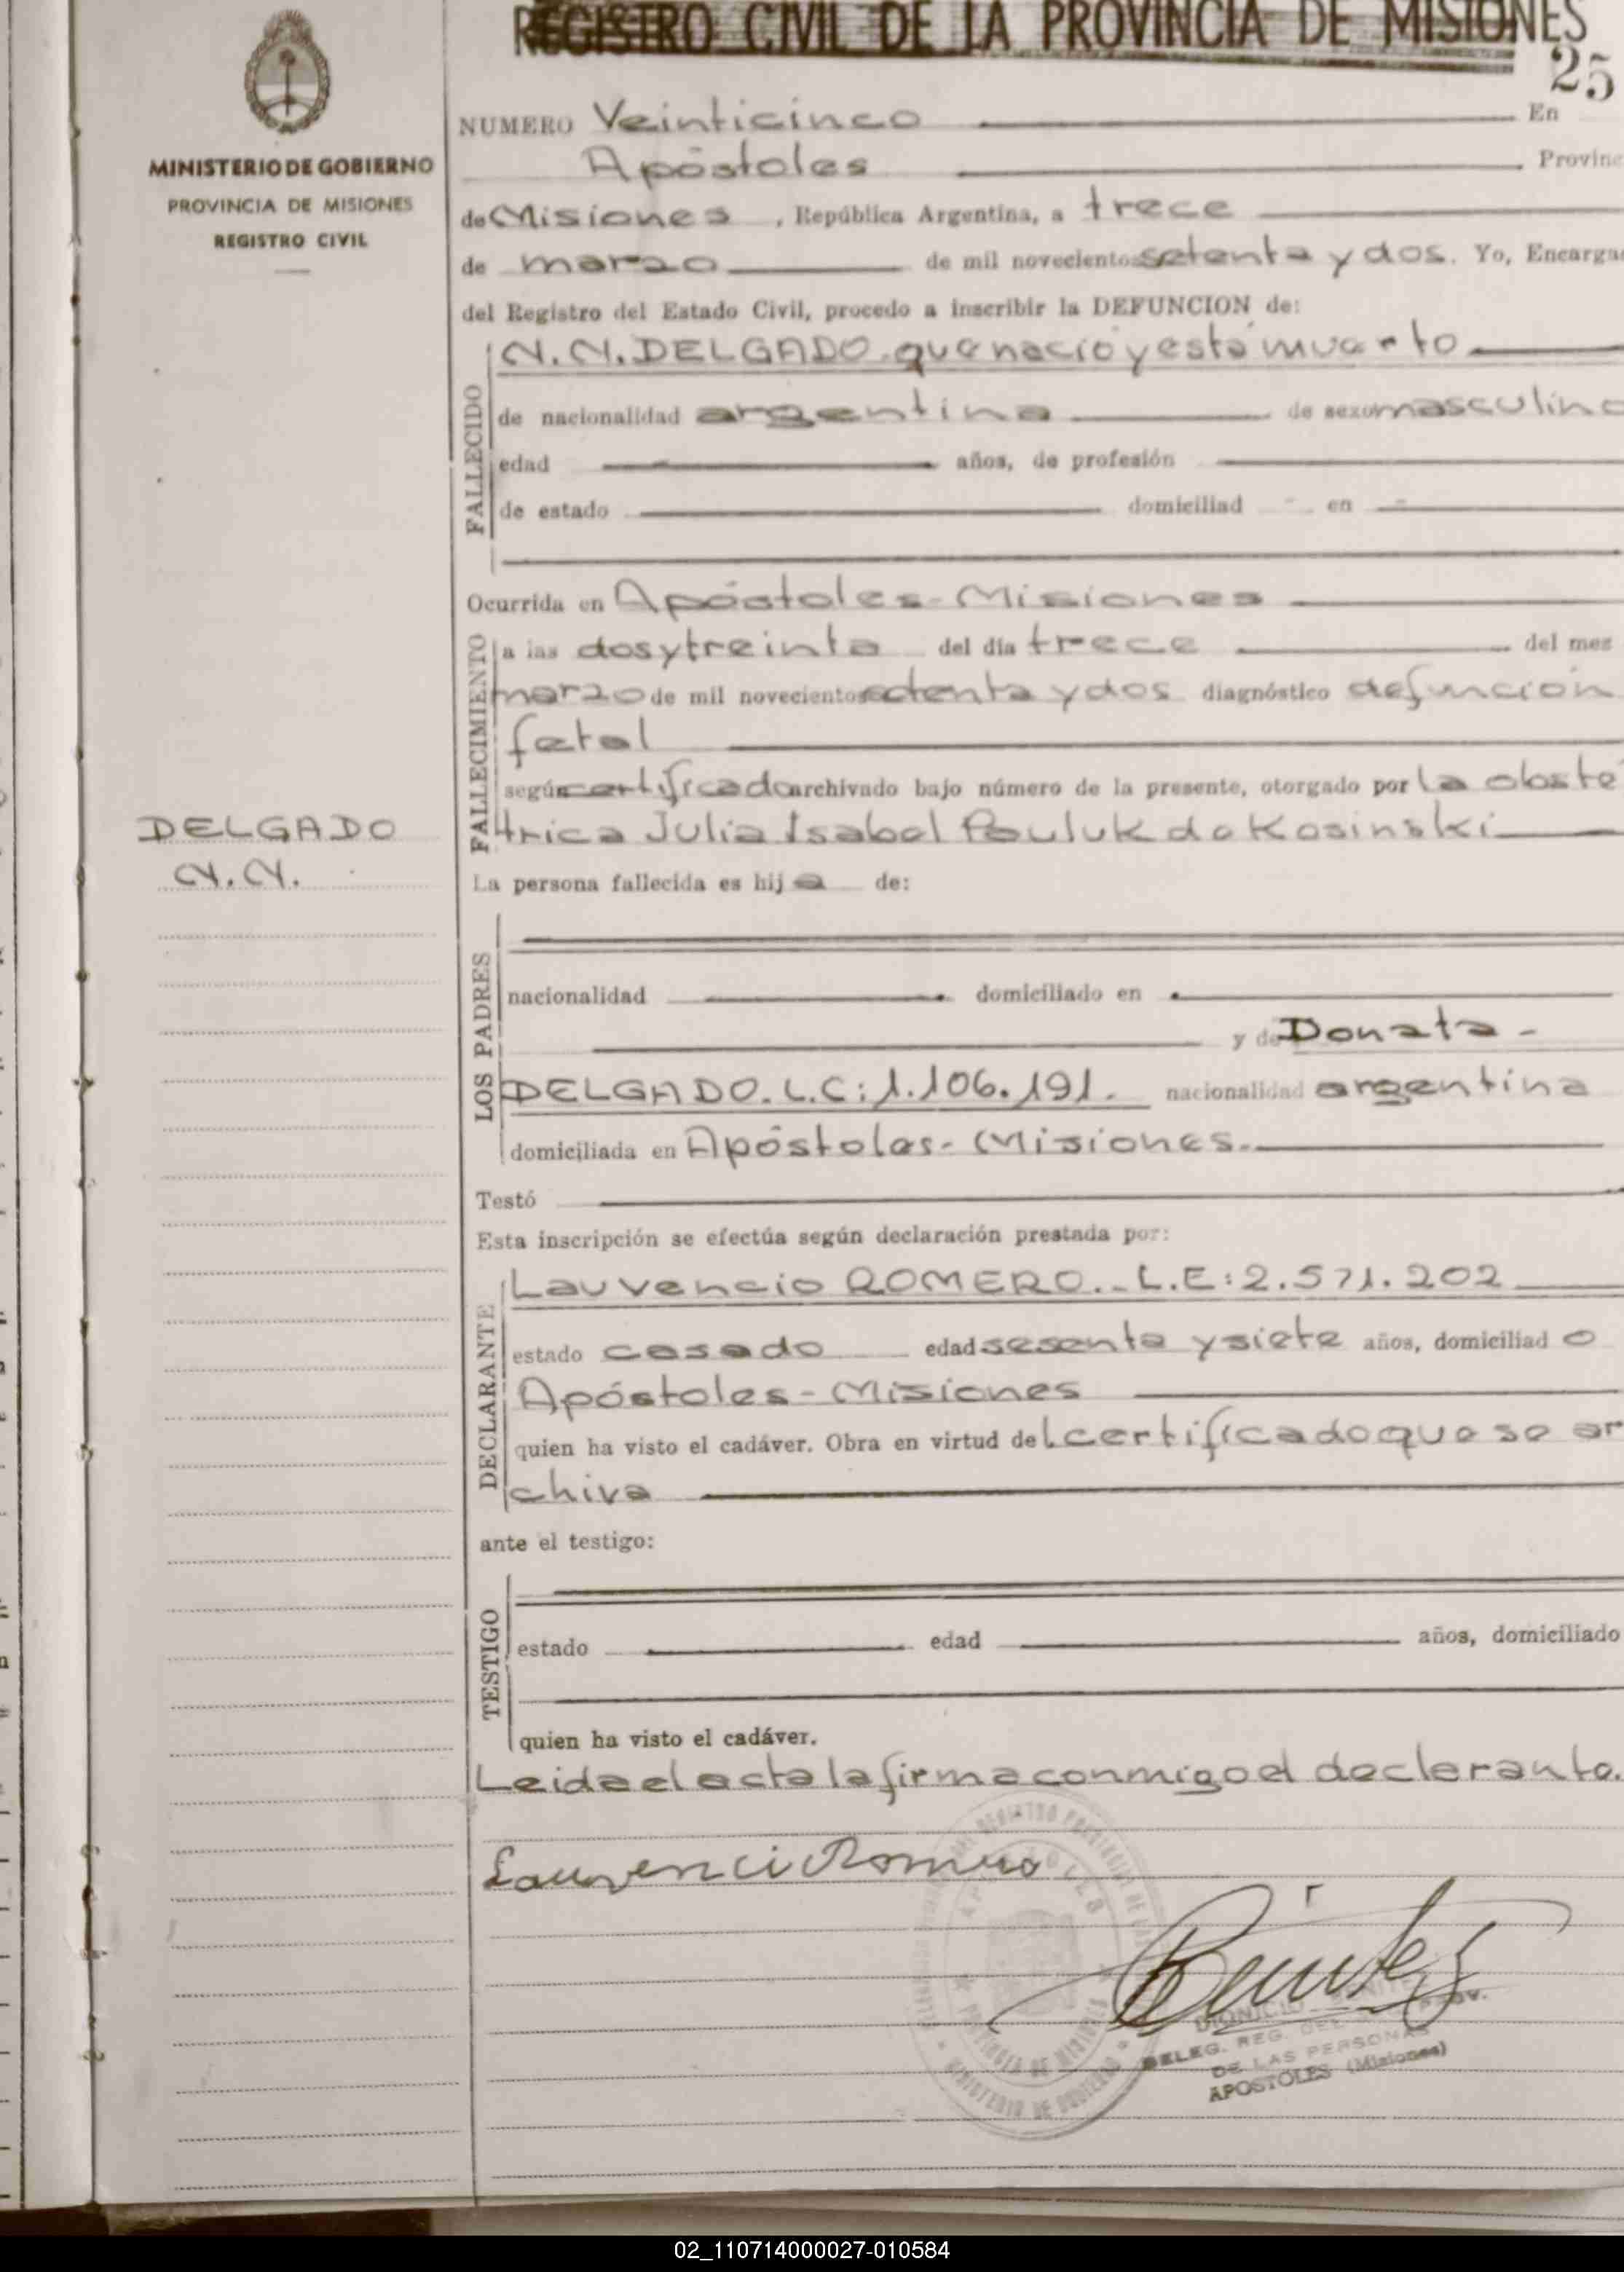 REGISTRO CIVIL DE LA PROVINCIA DE MISIONES
25
MINISTERIO DE GOBIERNO
PROVINCIA DE MISIONES
REGISTRO CIVIL
NUMERO Veinticinco En
Apóstoles Provinc
de Misiones, República Argentina, a trece
de marzo de mil novecientos setenta y dos. Yo, Encarga
del Registro del Estado Civil, procedo a inscribir la DEFUNCION de:
FALLECIDO
N.N. DELGADO. que nació y está muerto
de nacionalidad argentina de sexo masculino
edad años, de profesión
de estado domiciliad en
Ocurrida en Apóstoles - Misiones
FALLECIMIENTO
a las dos y treinta del día trece del mes
marzo de mil novecientos setenta y dos diagnóstico defunción
fetal
según certificado archivado bajo número de la presente, otorgado por la obsté
trica Julia Isabel Pauluk de Kosinski
DELGADO
N.N.
La persona fallecida es hij o de:
LOS PADRES
nacionalidad domiciliado en
y de Donata -
DELGADO. L.C: 1.106.191. nacionalidad argentina
domiciliada en Apóstoles - Misiones.
Testó
Esta inscripción se efectúa según declaración prestada por:
DECLARANTE
Lauvencio ROMERO.- L.E: 2.571.202
estado casado edad sesenta y siete años, domiciliad o
Apóstoles - Misiones
quien ha visto el cadáver. Obra en virtud del certificado que se ar
chiva
ante el testigo:
TESTIGO
estado edad años, domiciliado
quien ha visto el cadáver.
Leida el acta la firma conmigo el declarante.
Lauvenci Romero
Benitez
DIONICIO
DELEG. REG. DEL PROV.
DE LAS PERSONAS
APOSTOLES (Misiones)
PROVINCIA DE MISIONES
MINISTERIO DE GOBIERNO
02_110714000027-010584